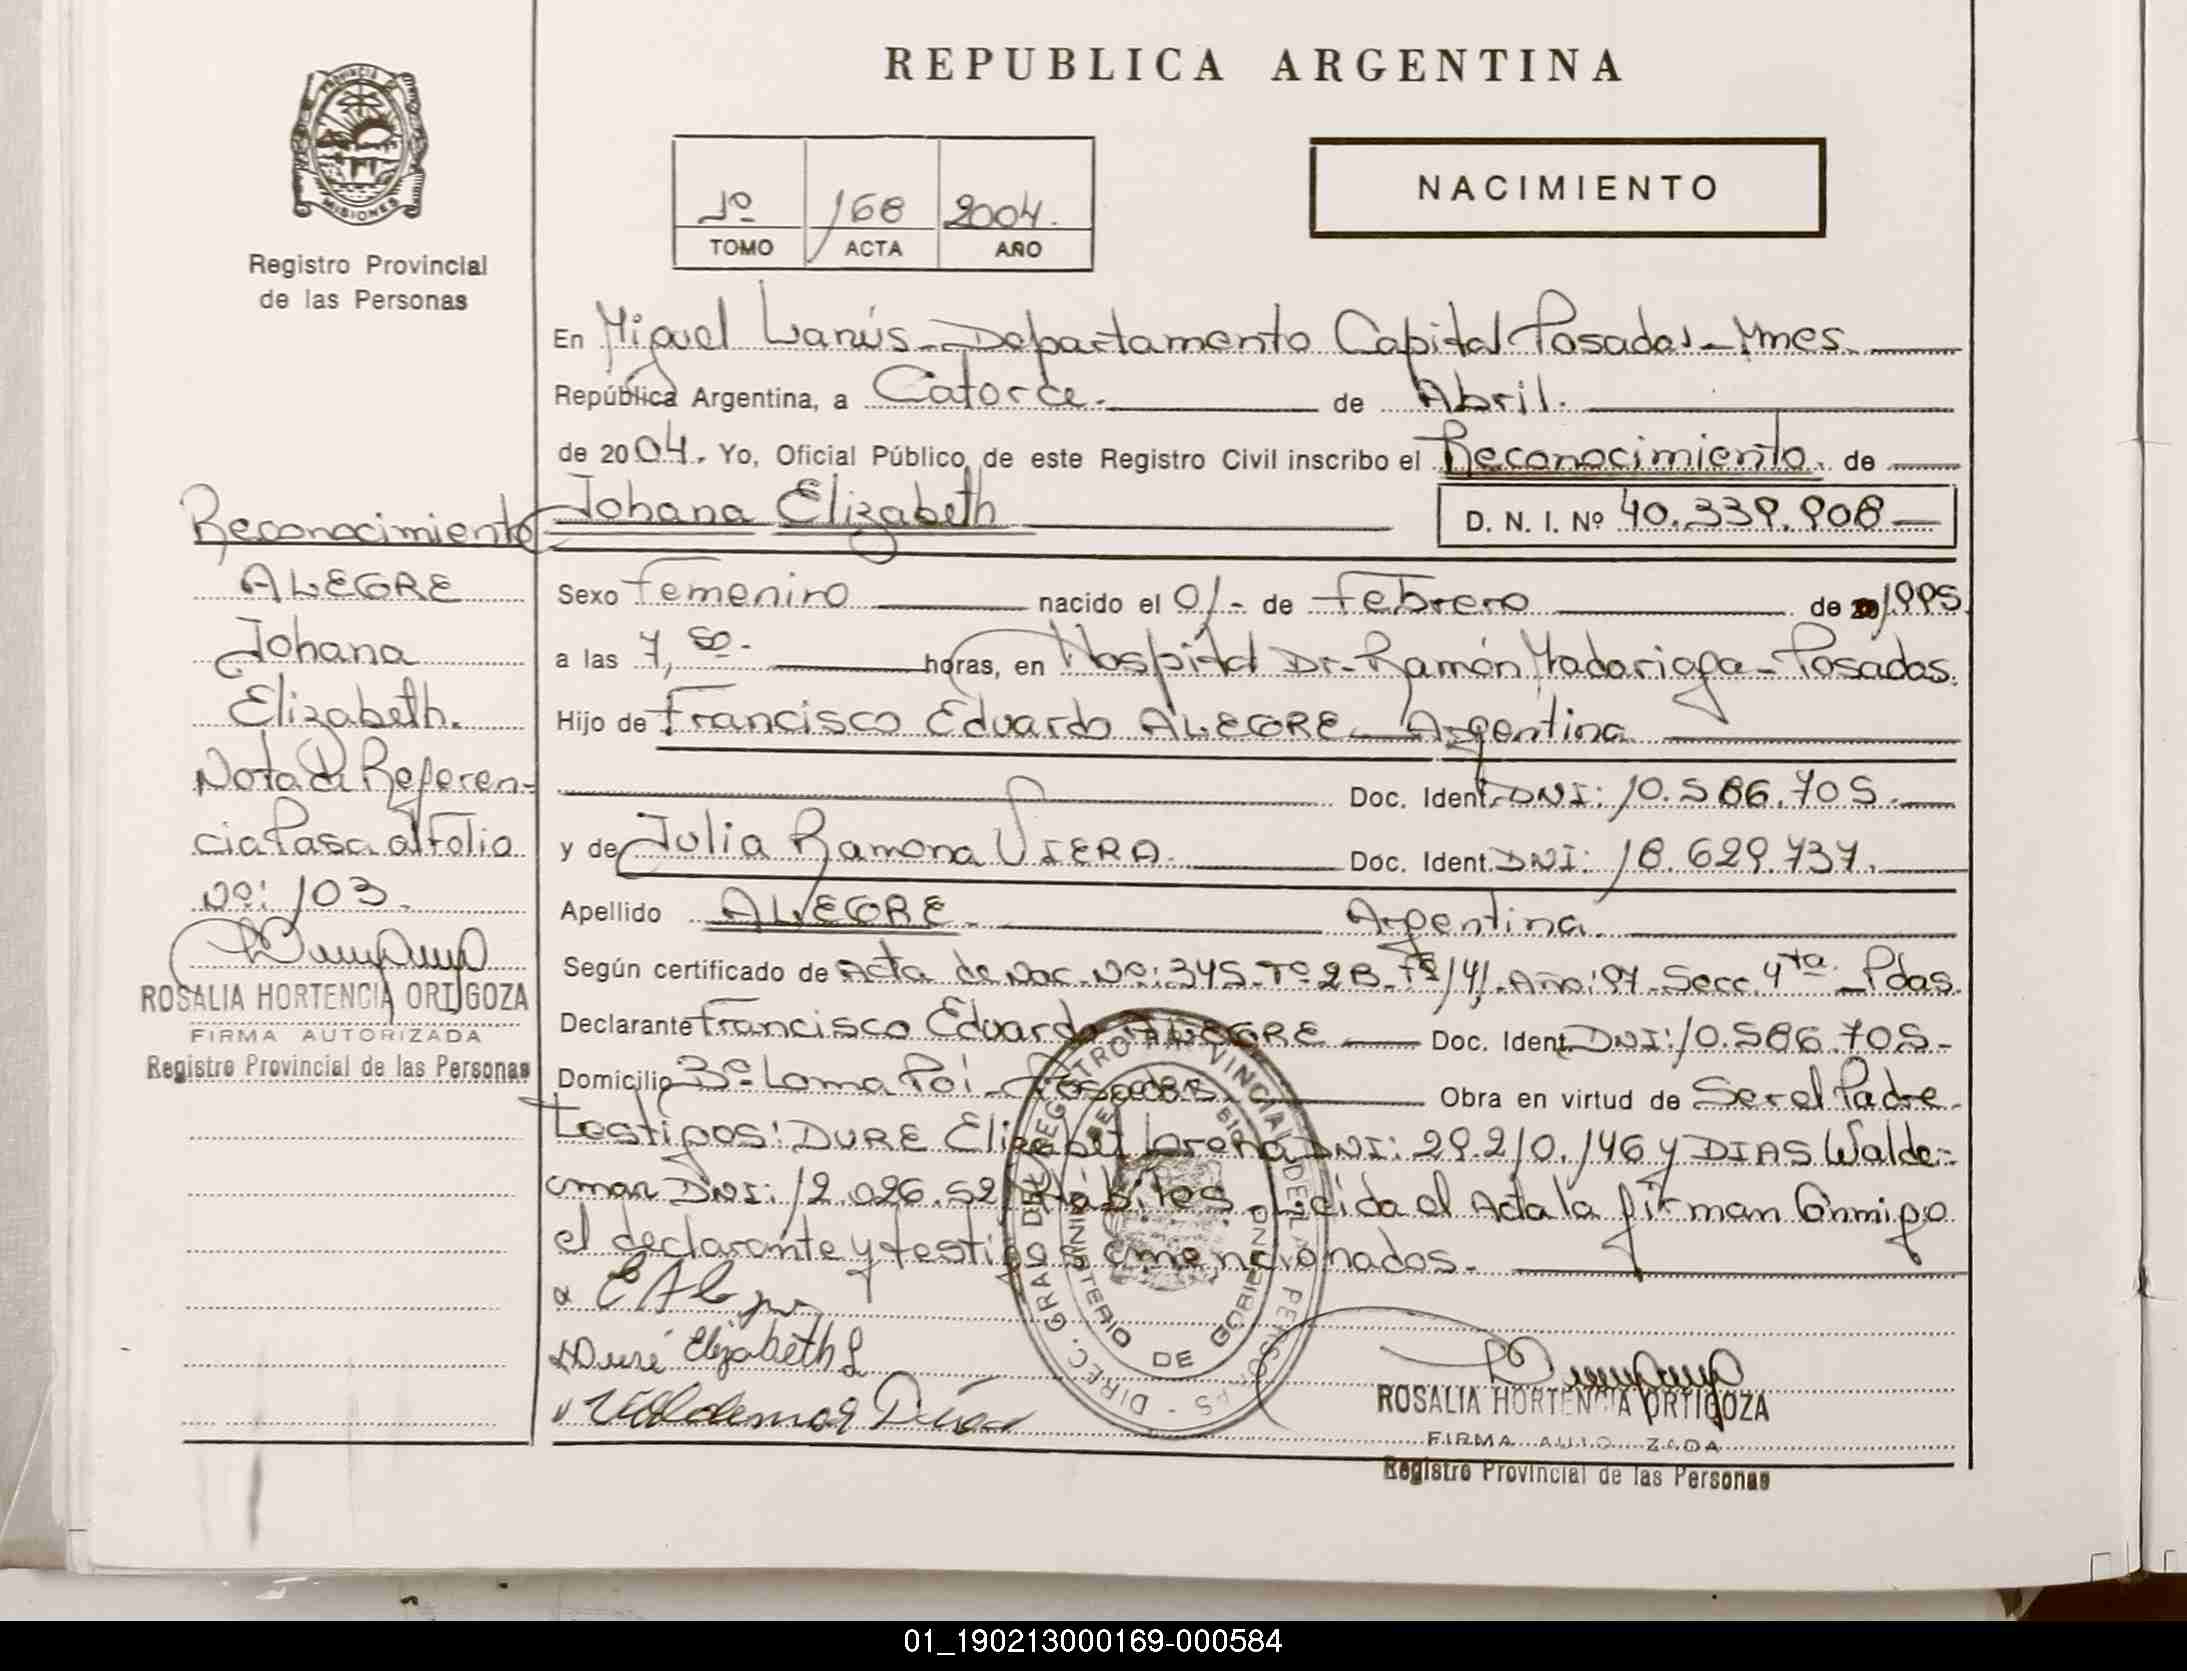 REPUBLICA ARGENTINA
PROVINCIA DE
MISIONES
Registro Provincial
de las Personas
1º 168 2004.
TOMO ACTA AÑO
NACIMIENTO
En Miguel Lanús - Departamento Capital Posadas - Mnes.
República Argentina, a Catorce. de Abril.
de 2004. Yo, Oficial Público de este Registro Civil inscribo el Reconocimiento. de
Johana Elizabeth
D. N. I. Nº 40.339.908
Sexo Femenino nacido el 01- de Febrero de 1995
a las 7,50- horas, en Hospital Dr. Ramón Madariaga - Posadas.
Hijo de Francisco Eduardo ALEGRE - Argentina
Doc. Ident. DNI: 10.586.705.
y de Julia Ramona VIERA. Doc. Ident. DNI: 18.629.737.
Apellido ALEGRE. Argentina.
Según certificado de Acta de Nac. Nº: 345-Tº 2B-Fº 141-Año: 97-Secc. 4ta - Pdas.
Declarante Francisco Eduardo ALEGRE Doc. Ident. DNI: 10.586.705-
Domicilio Bº Loma Poí - Posadas. Obra en virtud de Ser el Padre.
Testigos: DURE Elizabet Lorena DNI: 29.210.146 y DIAS Walde-
mar DNI: 12.026.52 Hábiles. Leída el Acta la firman Conmigo
el declarante y testigos mencionados.
Duré Elizabeth L
Valdemar
ROSALIA HORTENCIA ORTIGOZA
FIRMA AUTORIZADA
Registro Provincial de las Personas
Reconocimiento
ALEGRE
Johana
Elizabeth.
Nota de Referen-
cia Pasa al Folio
Nº: 103.
ROSALIA HORTENCIA ORTIGOZA
FIRMA AUTORIZADA
Registro Provincial de las Personas
DIREC. GRAL DEL REGISTRO PROVINCIAL DE LAS PERSONAS
MINISTERIO DE GOBIERNO
01_190213000169-000584